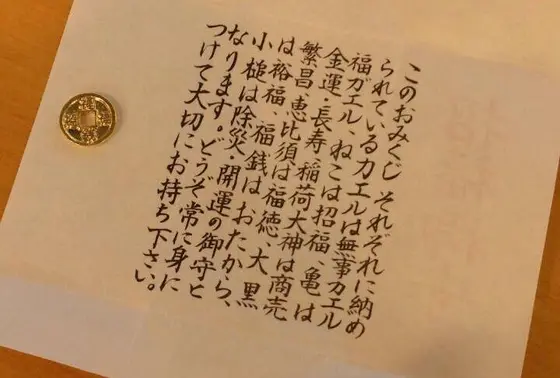 このおみくじ それぞれに納め
られているカエルは無事カエル
福ガエル、ねこは招福、亀は
金運・長寿、稲荷大神は商売
繁昌、恵比須は福徳、大黒
は裕福、福銭はおたから、
小槌は除災・開運の御守と
なります。どうぞ常に身に
つけて大切にお持ち下さい。